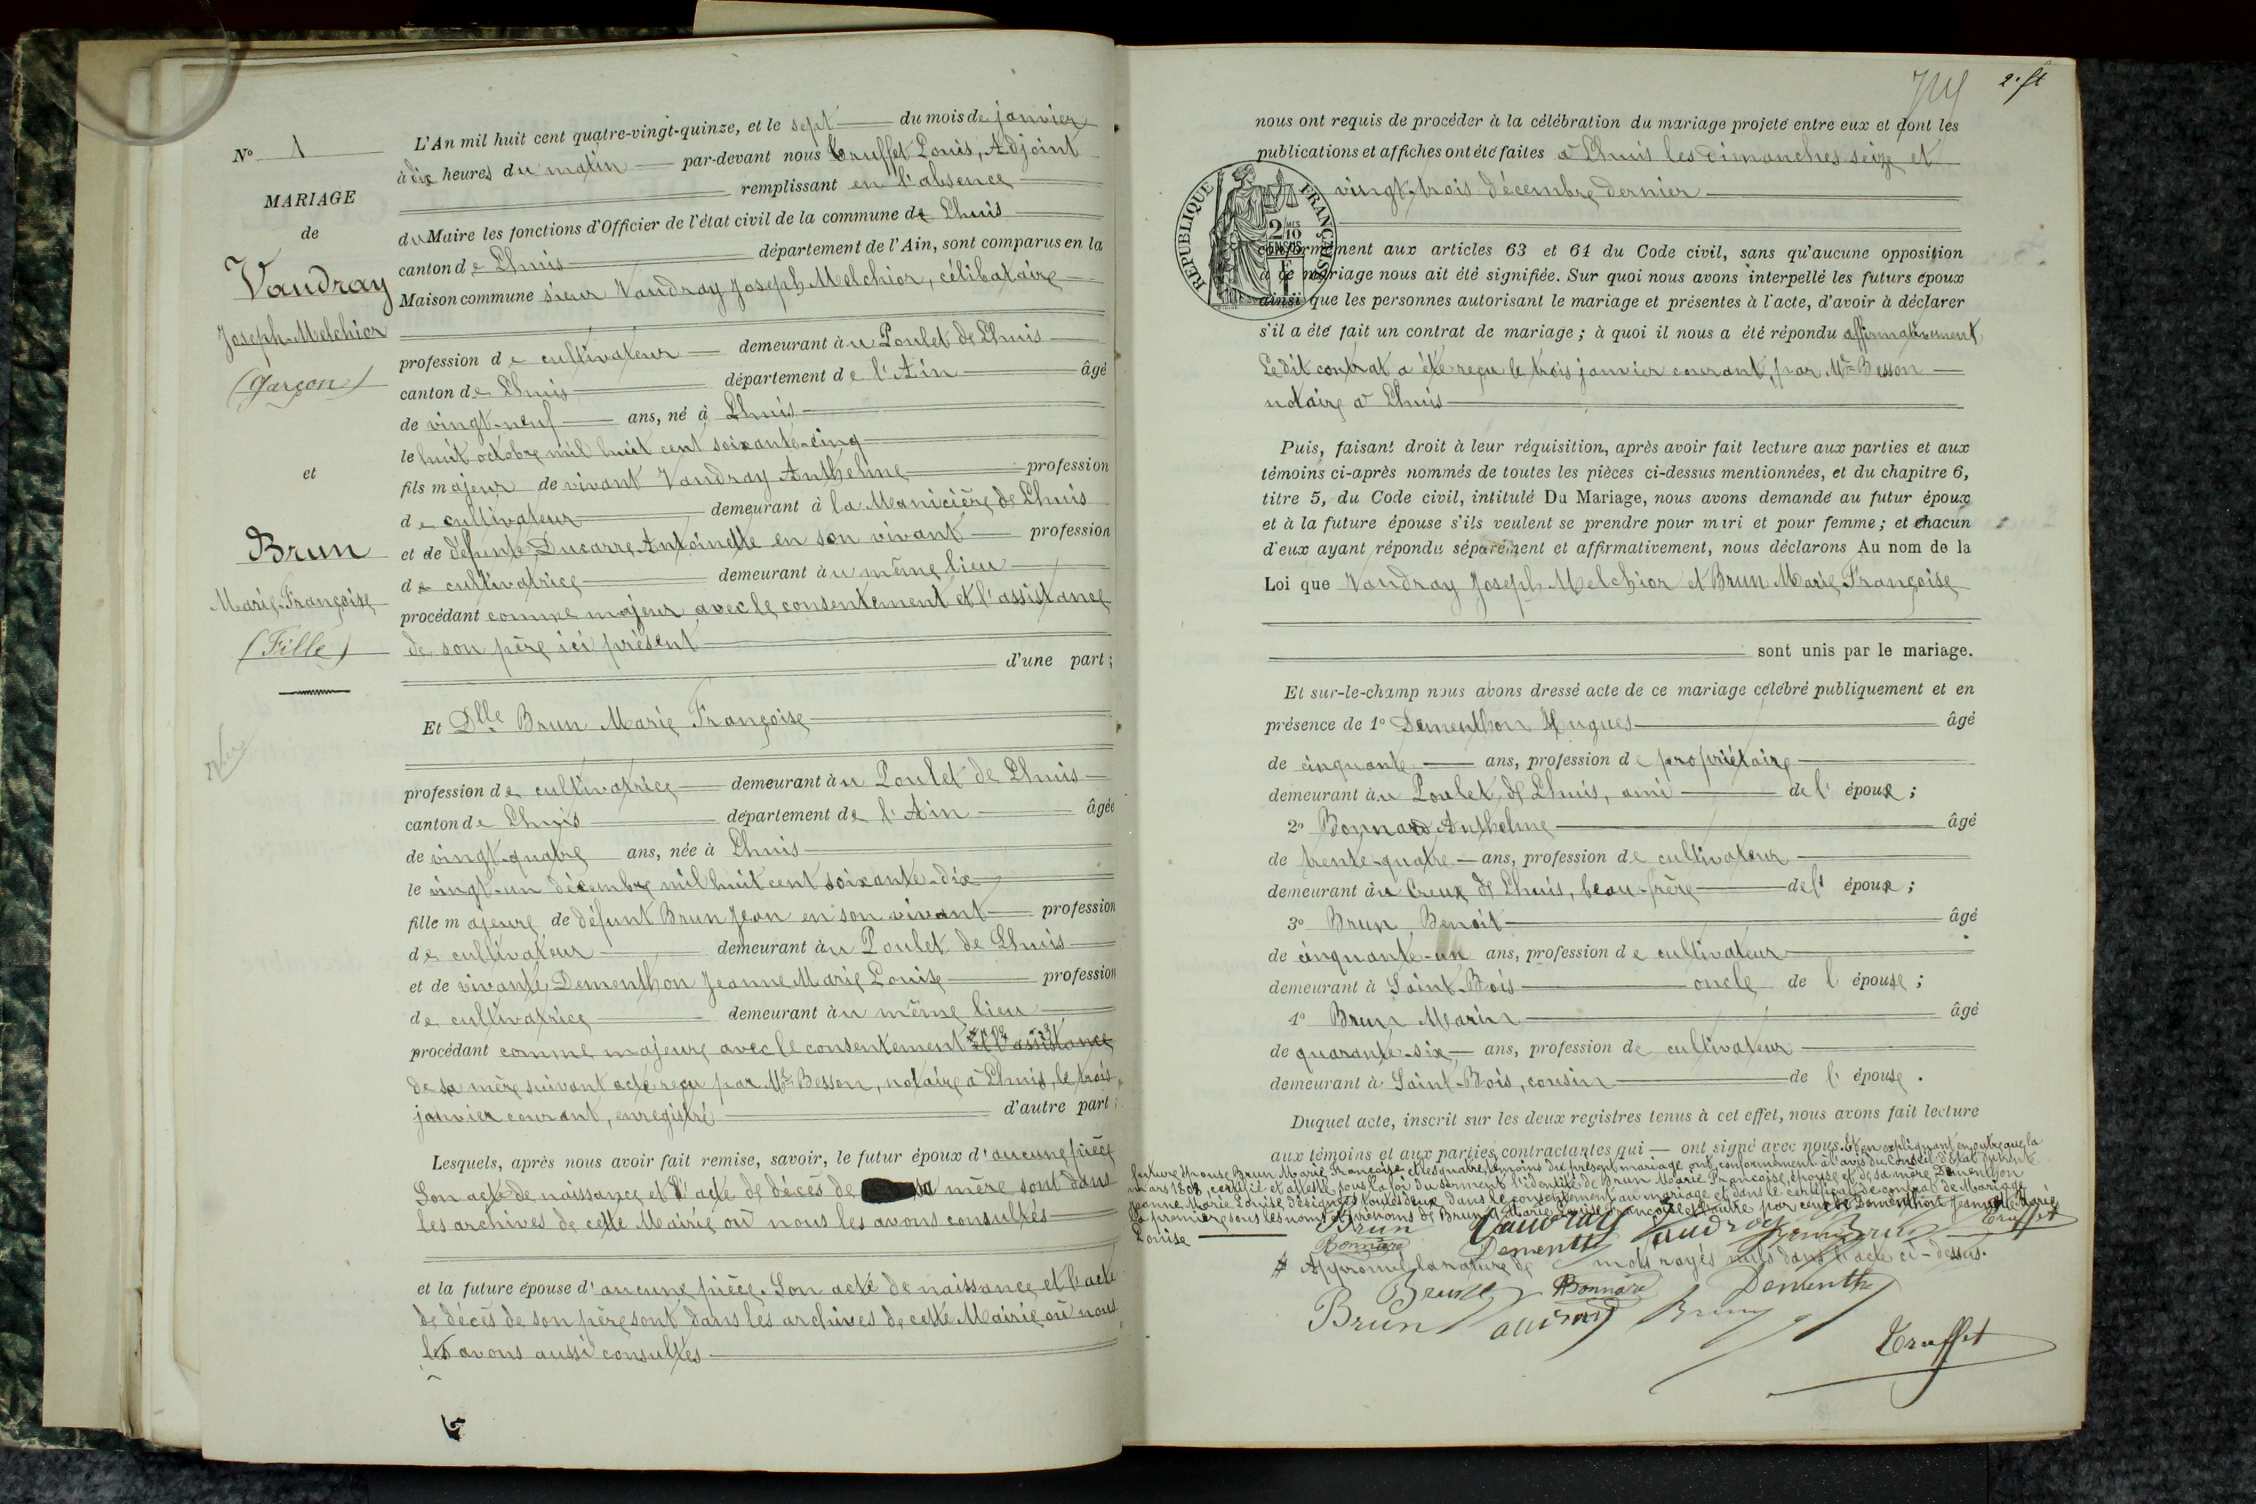 N° 1
MARIAGE
de
Vaudray
Joseph-Melchior
(Garçon)
et
Brun
Marie-Françoise
(Fille)
L'An mil huit cent quatre-vingt-quinze, et le sept du mois de janvier
à dix heures du matin par-devant nous Truffet Louis, Adjoint
remplissant en l'absence
du Maire les fonctions d'Officier de l'état civil de la commune de Lhuis
canton de Lhuis département de l'Ain, sont comparus en la
Maison commune sieur Vaudray Joseph Melchior, célibataire
profession de cultivateur demeurant au Poulet de Lhuis
canton de Lhuis département de l'Ain âgé
de vingt-neuf ans, né à Lhuis
le huit octobre mil huit cent soixante-cinq
fils majeur de vivant Vaudray Anthelme profession
de cultivateur demeurant à la Manicière de Lhuis
et de défunte Ducarre Antoinette en son vivant profession
de cultivatrice demeurant au même lieu
procédant comme majeur avec le consentement et l'assistance
de son père ici présent
d'une part;
Et Dlle Brun Marie Françoise
profession de cultivatrice demeurant au Poulet de Lhuis
canton de Lhuis département de l'Ain âgée
de vingt-quatre ans, née à Lhuis
le vingt-un décembre mil huit cent soixante-dix
fille majeure de défunt Brun Jean en son vivant profession
de cultivateur demeurant au Poulet de Lhuis
et de vivante Dementhon Jeanne Marie Louise profession
de cultivatrice demeurant au même lieu
procédant comme majeure avec le consentement et l'assistance
de sa mère suivant acte reçu par Me Besson, notaire à Lhuis, le trois
janvier courant, enregistré d'autre part;
Lesquels, après nous avoir fait remise, savoir, le futur époux d'aucune pièce
Son acte de naissance et l'acte de décès de sa mère sont dans
les archives de cette Mairie où nous les avons consultés
et la future épouse d'aucune pièce. Son acte de naissance et l'acte
de décès de son père sont dans les archives de cette Mairie où nous
les avons aussi consultés
2e ft
nous ont requis de procéder à la célébration du mariage projeté entre eux et dont les
publications et affiches ont été faites à Lhuis les dimanches seize et
vingt-trois décembre dernier
RÉPUBLIQUE FRANÇAISE
2/10 EN SUS
conformément aux articles 63 et 64 du Code civil, sans qu'aucune opposition
à ce mariage nous ait été signifiée. Sur quoi nous avons interpellé les futurs époux
ainsi que les personnes autorisant le mariage et présentes à l'acte, d'avoir à déclarer
s'il a été fait un contrat de mariage; à quoi il nous a été répondu affirmativement
Ledit contrat a été reçu le trois janvier courant, par Me Besson
notaire à Lhuis
Puis, faisant droit à leur réquisition, après avoir fait lecture aux parties et aux
témoins ci-après nommés de toutes les pièces ci-dessus mentionnées, et du chapitre 6,
titre 5, du Code civil, intitulé Du Mariage, nous avons demandé au futur époux
et à la future épouse s'ils veulent se prendre pour mari et pour femme; et chacun
d'eux ayant répondu séparément et affirmativement, nous déclarons Au nom de la
Loi que Vaudray Joseph Melchior et Brun Marie Françoise
sont unis par le mariage.
Et sur-le-champ nous avons dressé acte de ce mariage célébré publiquement et en
présence de 1° Dementhon Hugues âgé
de cinquante ans, profession de propriétaire
demeurant au Poulet de Lhuis, ami de l'époux;
2° Bonnard Anthelme âgé
de trente-quatre ans, profession de cultivateur
demeurant au Creux de Lhuis, beau-frère de l'époux;
3° Brun Benoit âgé
de cinquante-un ans, profession de cultivateur
demeurant à Saint-Bois oncle de l'épouse;
4° Brun Marin âgé
de quarante-six ans, profession de cultivateur
demeurant à Saint-Bois, cousin de l'épouse.
Duquel acte, inscrit sur les deux registres tenus à cet effet, nous avons fait lecture
aux témoins et aux parties contractantes qui ont signé avec nous. Et en expliquant en outre que la
future épouse Brun Marie Françoise et les quatre témoins du présent mariage ont, conformément à l'avis du Conseil d'État du trente
mars 1808, certifié et attesté sous la foi du serment l'identité de Brun Marie Françoise, épouse et de sa mère Dementhon
Jeanne Marie Louise désignées toutes deux dans le consentement au mariage et dans le certificat de contrat de Mariage
la première sous les noms et prénoms de Brun Marie Louise Françoise et l'autre par ceux de Dementhon Jeannette Marie
Louise
Brun Vaudray Vaudray Truffet
Bonnard Dementh
Approuvé la rature de mots rayés nuls dans l'acte ci-dessus.
Brun Bonnard Dementh
Brun Brun
Truffet